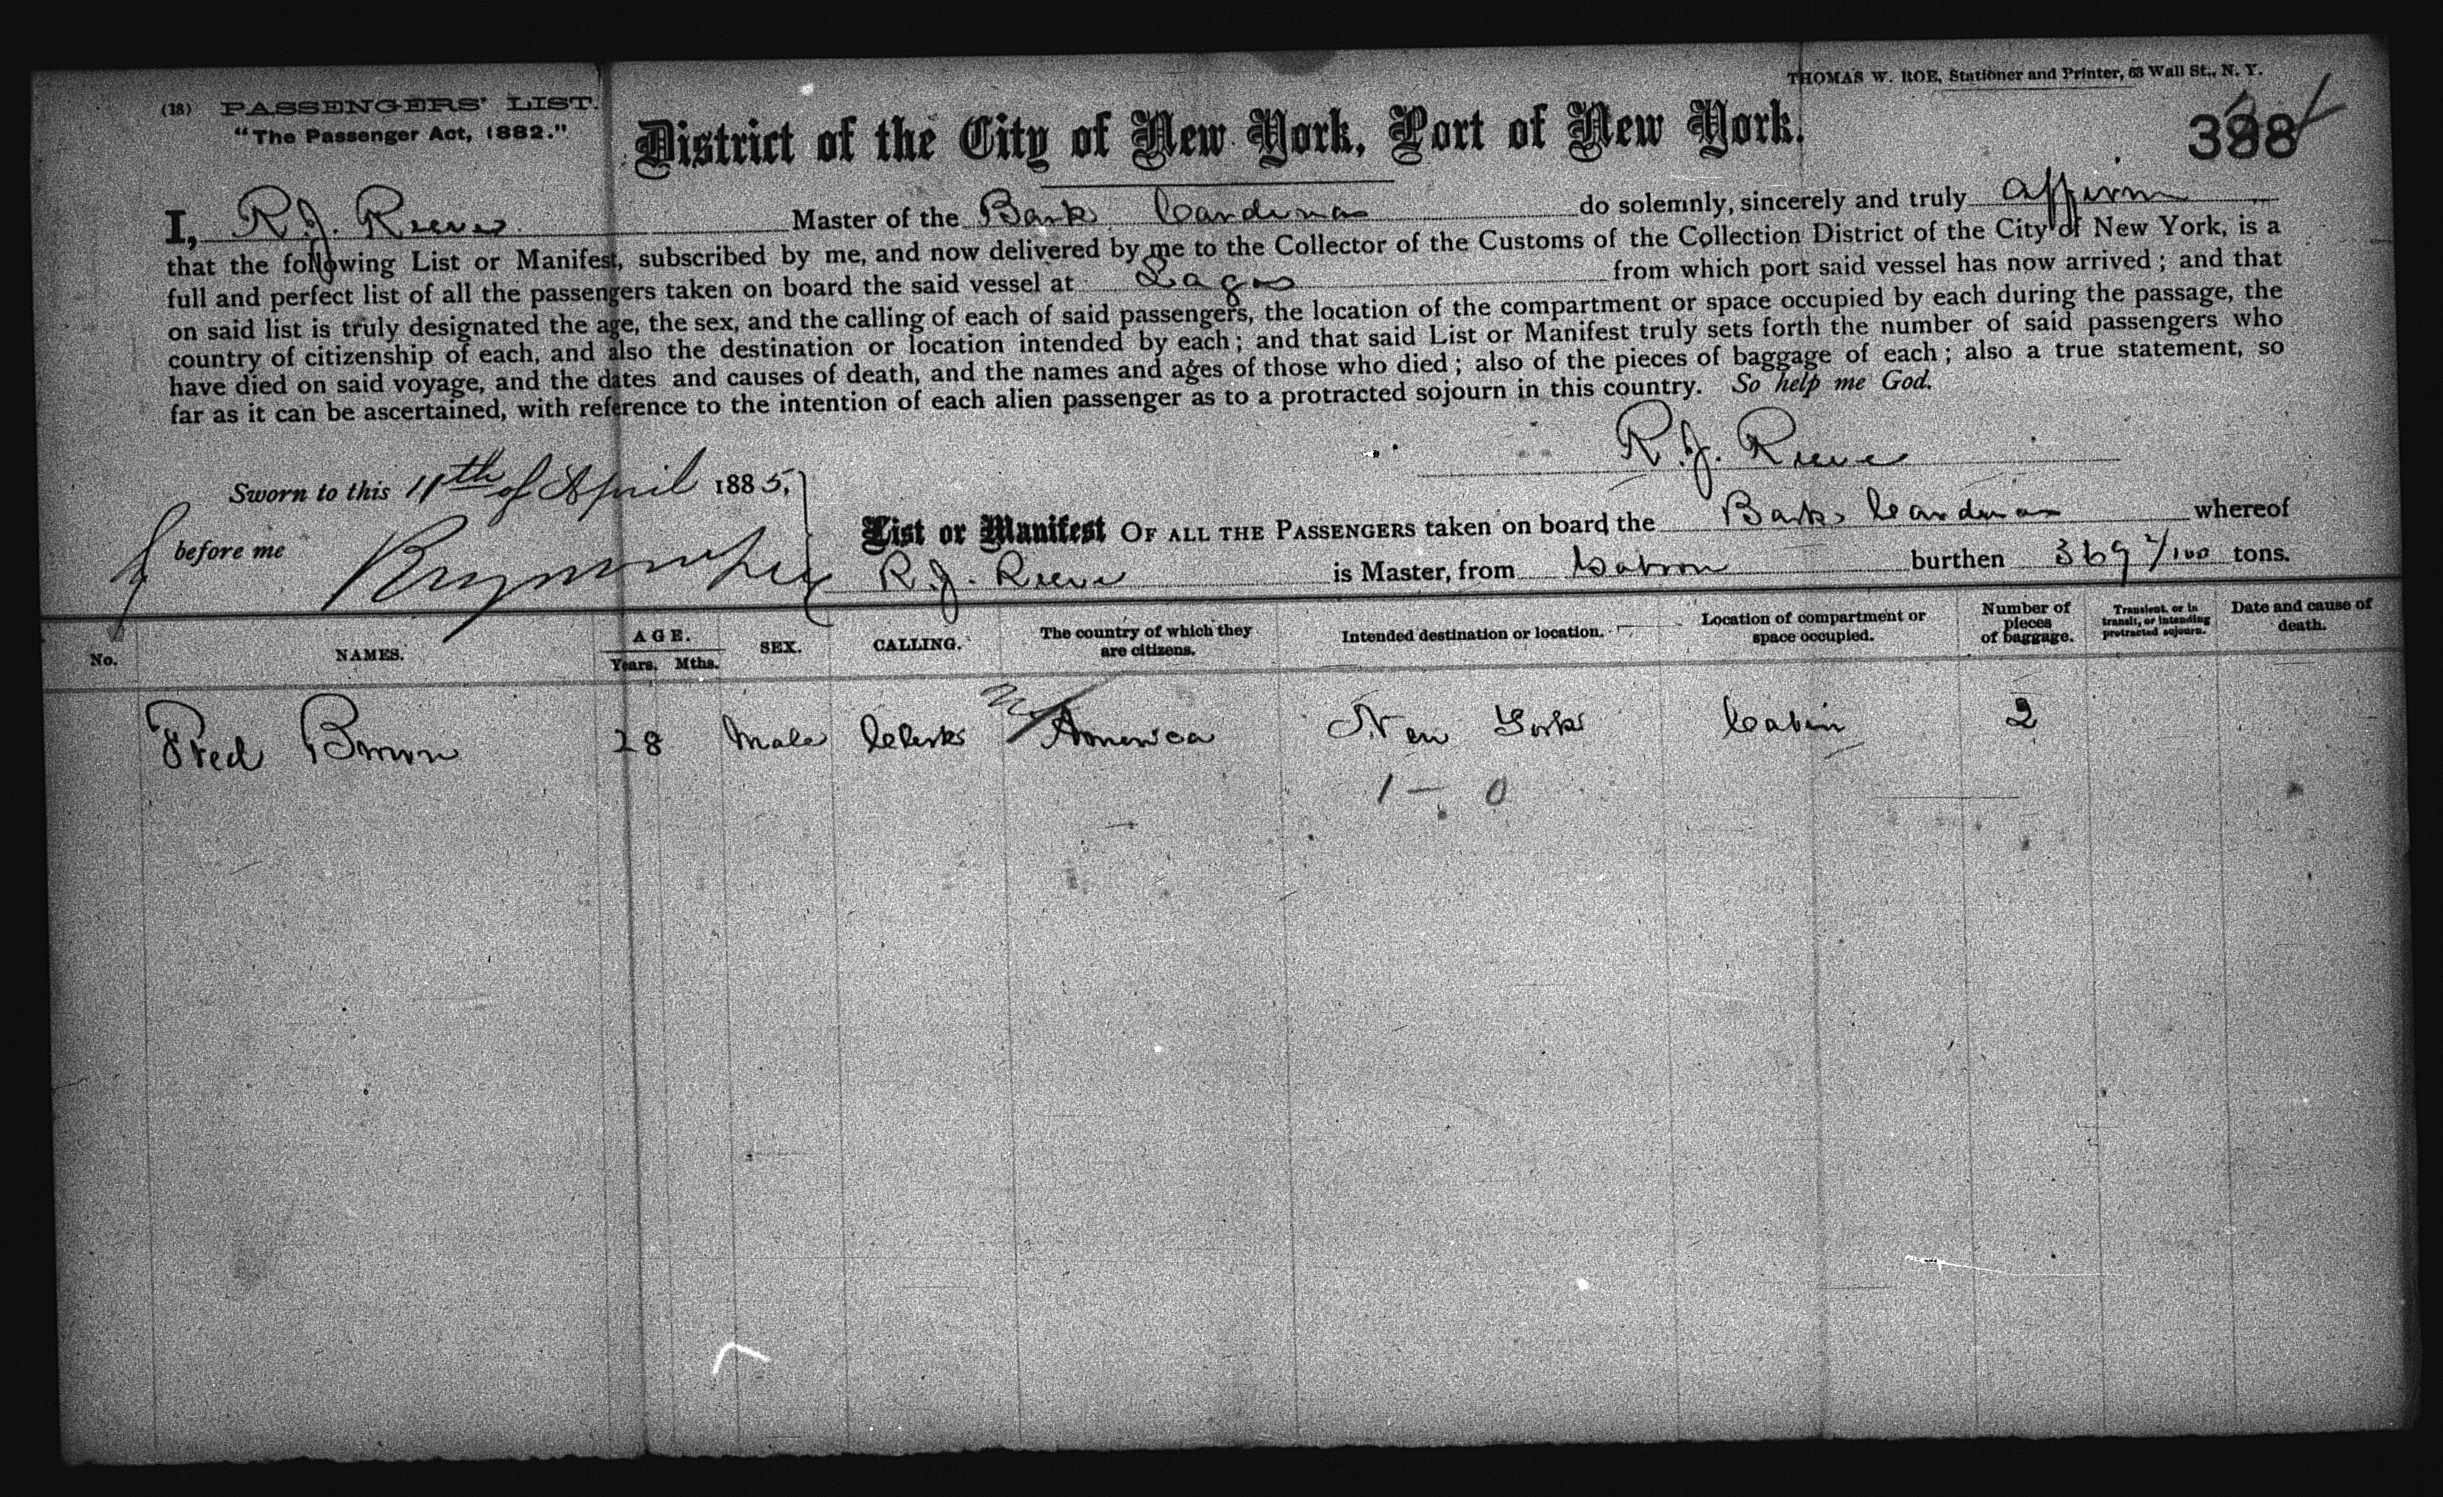 THOMAS W. ROE, Stationer and Printer, 63 Wall St., N. Y.
(18) PASSENGERS' LIST.
"The Passenger Act, 1882."
District of the City of New York, Port of New York.
I, R. J. Reeve Master of the Bark Cardenas do solemnly, sincerely and truly affirm
that the following List or Manifest, subscribed by me, and now delivered by me to the Collector of the Customs of the Collection District of the City of New York, is a
full and perfect list of all the passengers taken on board the said vessel at Lagos from which port said vessel has now arrived; and that
on said list is truly designated the age, the sex, and the calling of each of said passengers, the location of the compartment or space occupied by each during the passage, the
country of citizenship of each, and also the destination or location intended by each; and that said List or Manifest truly sets forth the number of said passengers who
have died on said voyage, and the dates and causes of death, and the names and ages of those who died; also of the pieces of baggage of each; also a true statement, so
far as it can be ascertained, with reference to the intention of each alien passenger as to a protracted sojourn in this country. So help me God.
R. J. Reeve
Sworn to this 11th of April 1885,
before me
List or Manifest OF ALL THE PASSENGERS taken on board the Bark Cardenas whereof
R. J. Reeve is Master, from Gaboon burthen 369 /100 tons.
No. NAMES. AGE. Years. Mths. SEX. CALLING. The country of which they are citizens. Intended destination or location. Location of compartment or space occupied. Number of pieces of baggage. Transient, or in transit, or intending protracted sojourn. Date and cause of death.
Fred Brown 28 Male Clerk America New York Cabin 2
1 – 0